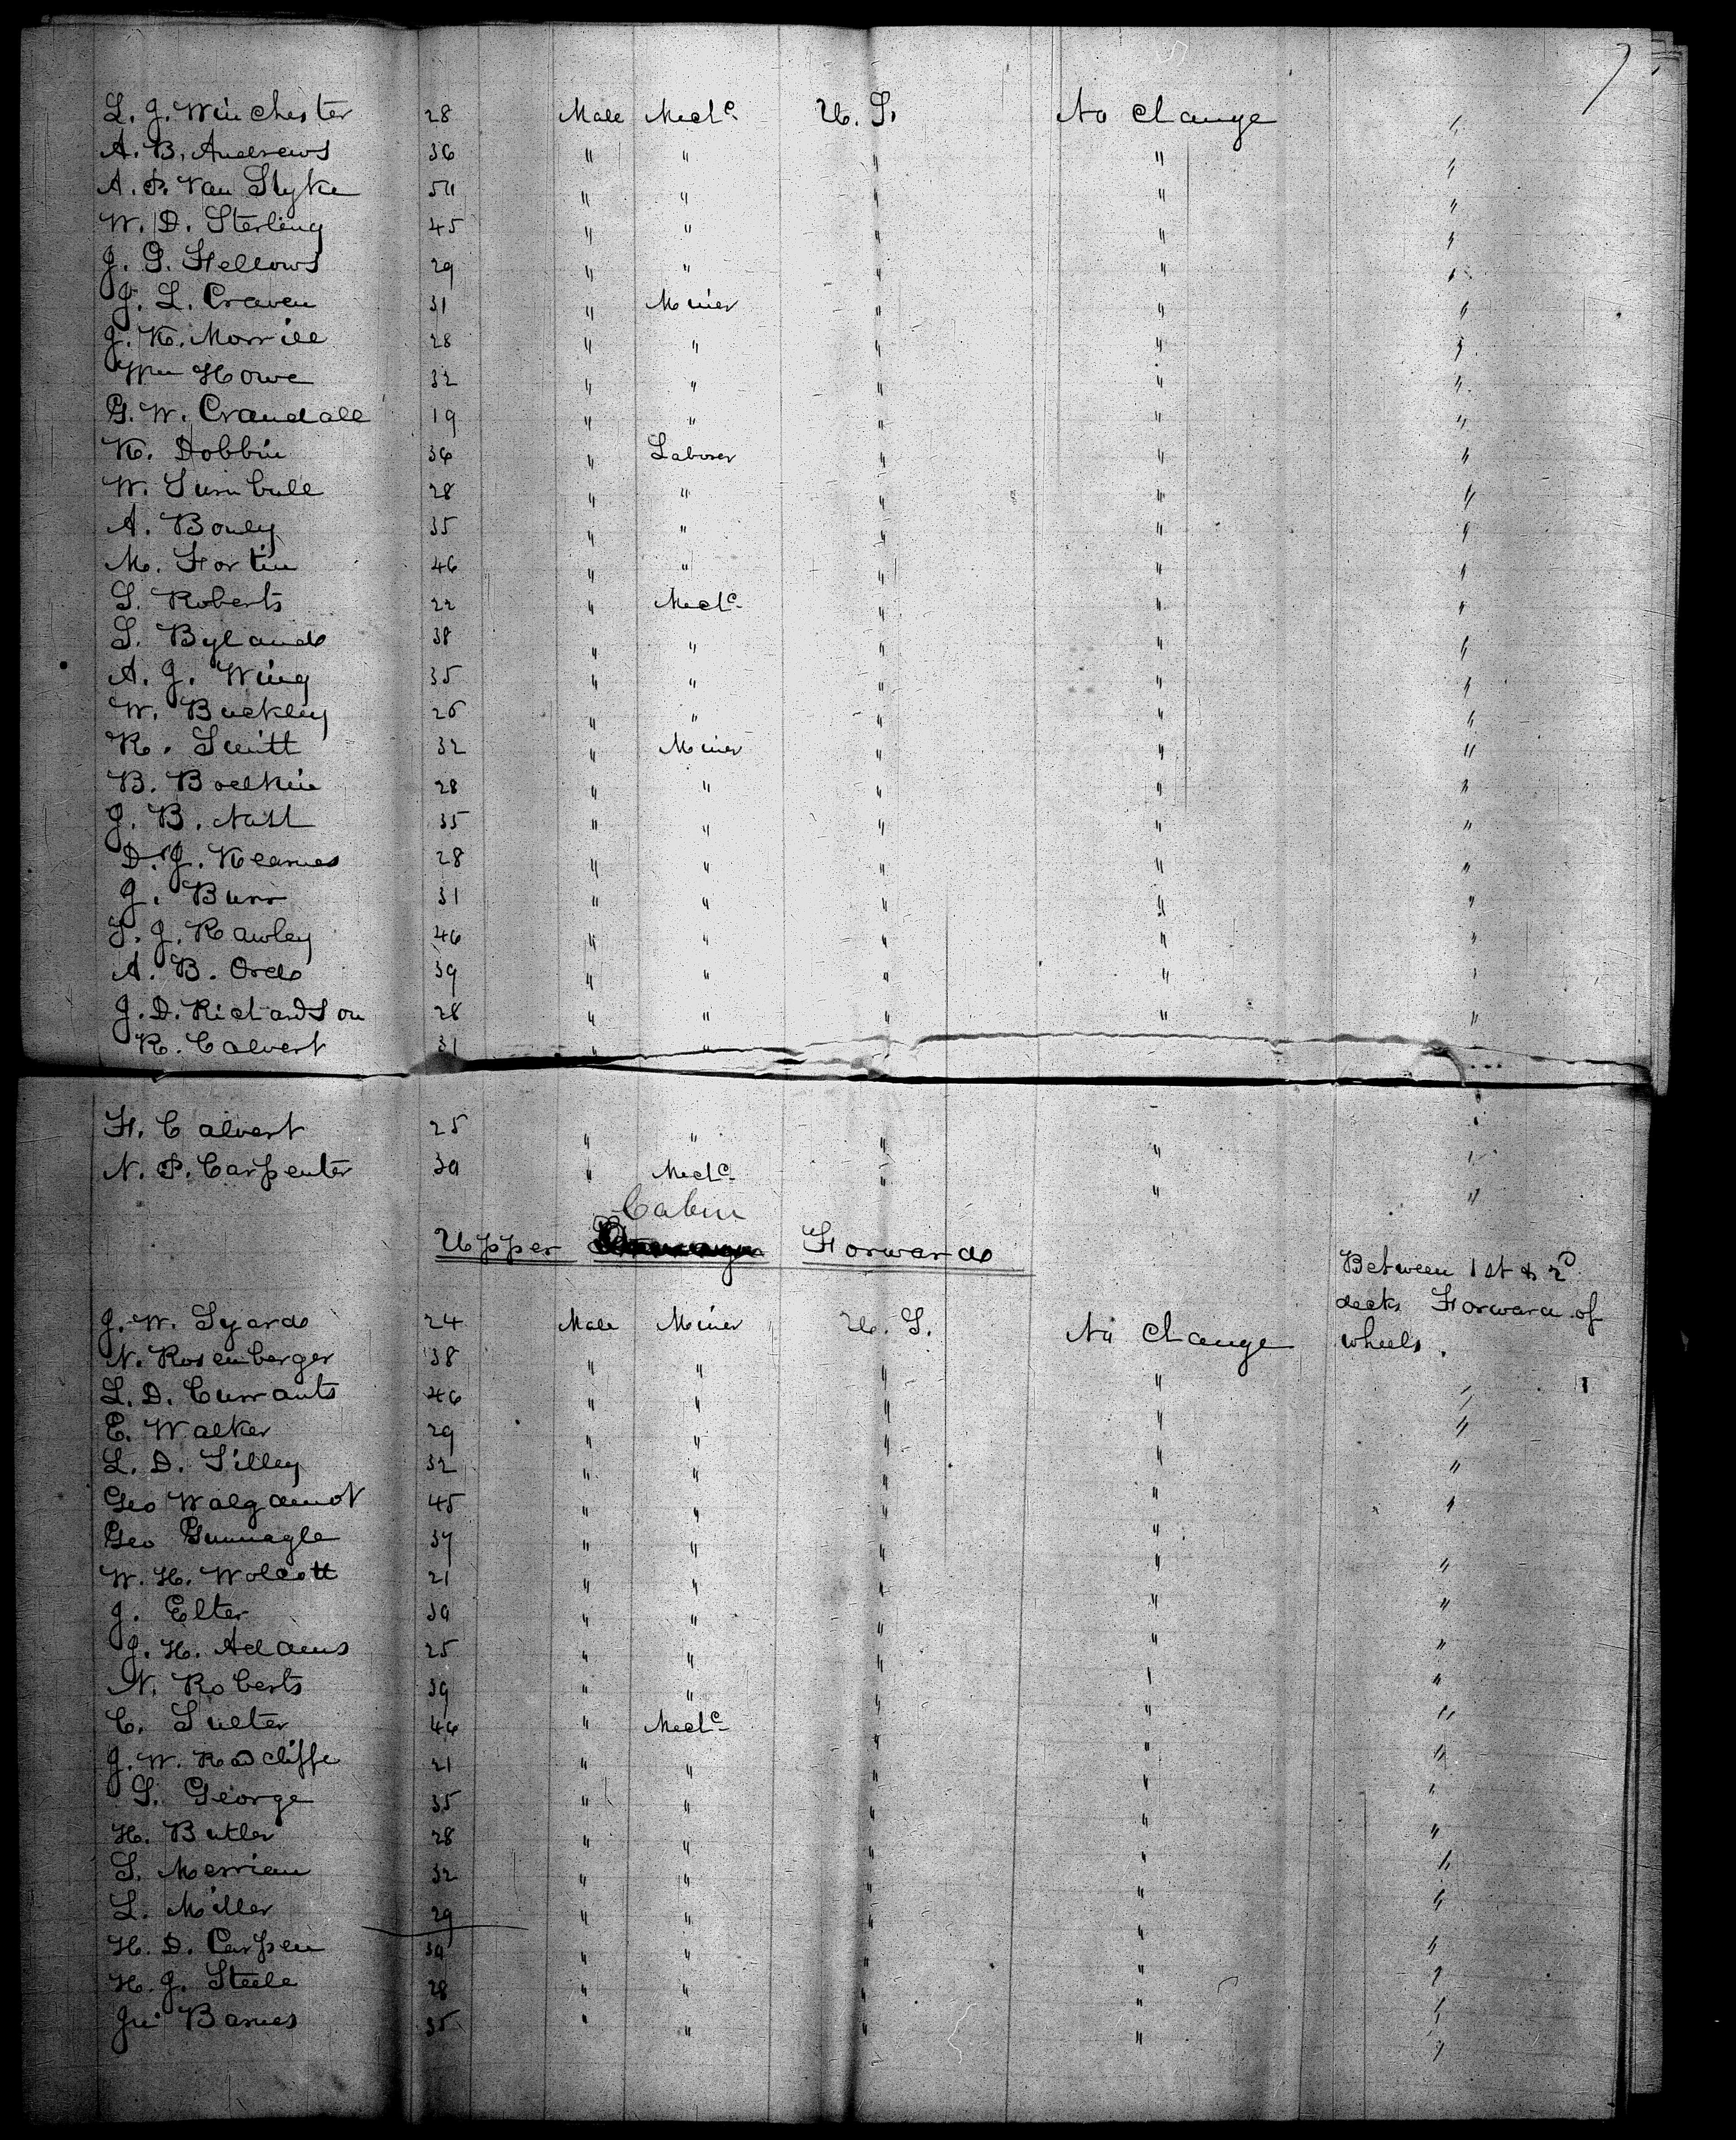 L. J. Winchester 28 Male Mechc. U. S. No Change "
A. B. Andrews 36 " " " " "
A. P. Van Slyke 50 " " " " "
W. D. Sterling 45 " " " " "
J. G. Fellows 29 " " " " "
J. L. Craven 31 " Miner " " "
J. K. Morrill 28 " " " " "
Wm Howe 32 " " " " "
G. W. Crandall 19 " " " " "
K. Dobbin 36 " Laborer " " "
W. Turnbull 28 " " " " "
A. Bouley 35 " " " " "
M. Fortin 46 " " " " "
S. Roberts 22 " Mechc. " " "
S. Bylands 38 " " " " "
A. J. Wing 35 " " " " "
W. Buckley 26 " " " " "
R. Smitt 32 " Miner " " "
B. Boelkin 28 " " " " "
J. B. Nash 35 " " " " "
D. J. Kearnes 28 " " " " "
J. Burr 31 " " " " "
T. J. Rawley 46 " " " " "
A. B. Ords 39 " " " " "
J. D. Richardson 28 " " " " "
R. Calvert 31 " "
F. Calvert 25 " " " " "
N. P. Carpenter 30 " Mechc. " " "
Cabin
Upper Forward
Between 1st & 2d
decks Forward of
J. W. Syards 24 Male Miner U. S. No Change wheels.
N. Rosenberger 38 " " " " "
L. D. Currants 46 " " " " "
E. Walker 29 " " " " "
L. D. Tilley 32 " " " " "
Geo Walgamot 45 " " " "
Geo Gunnagle 37 " " " " "
W. H. Wolcott 21 " " " " "
J. Elter 30 " " " " "
J. H. Adams 25 " " " " "
N. Roberts 39 " " " " "
C. Sulter 46 " Mechc. " " "
J. W. Radcliffe 21 " " " " "
S. George 35 " " " " "
H. Butler 28 " " " " "
S. Merriam 32 " " " " "
L. Miller 29 " " " " "
H. D. Carpen 30 " " " " "
H. J. Steele 28 " " " " "
Barnes 35 " " " " "